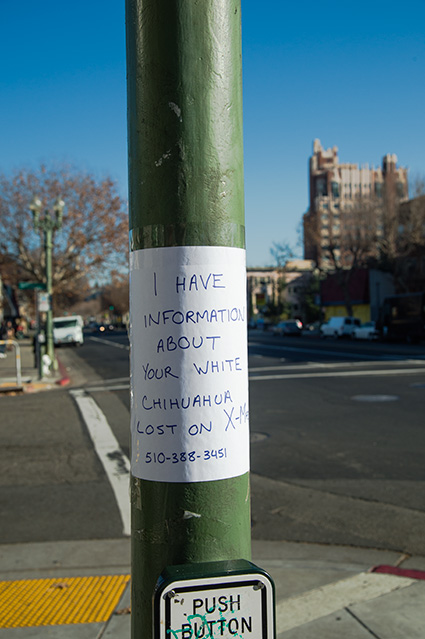 I HAVE
INFORMATION
ABOUT
YOUR WHITE
CHIHUAHUA
LOST ON
510-388-3451
PUSH
BUTTON